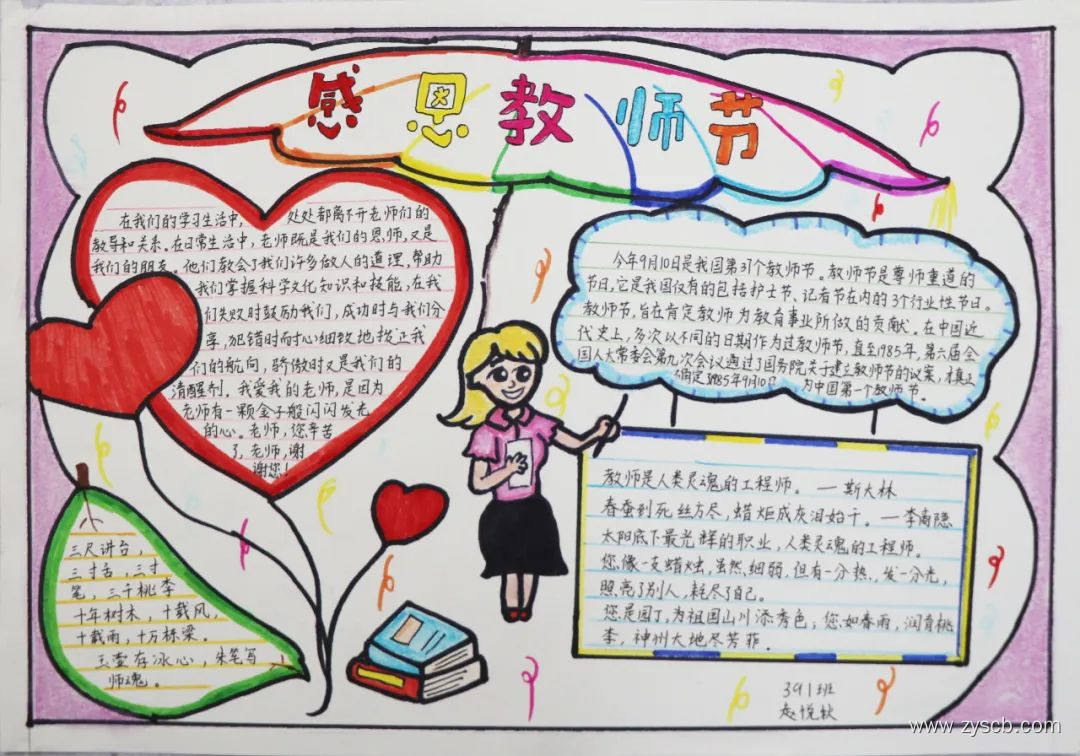 感恩教师节
在我们的学习生活中, 处处都离不开老师们的
教导和关系,在日常生活中,老师既是我们的恩,师,又是
我们的朋友。他们教会了我们许多做人的道理,帮助
我们掌握科学文化知识和技能,在我
们失败时鼓励我们,成功时与我们分
享,犯错时而心细致地找正我
们的航向,骄傲时又是我们的
清醒剂。我爱我的老师,是因为
老师有一颗金子般闪闪发光
的心。老师,您辛苦
了,老师,谢
谢您!
今年9月10日是我国第31个教师节。教师节是尊师重道的
节日,它是我国仅有的包括护士节、记者节在内的3个行业性节日。
教师节,旨在肯定教师为教育事业所做的贡献。在中国近
代史上,多次以不同的日期作为过教师节,直至1985年,第六届全
国人大常委会第九次会议通过了国务院关于建立教师节的议案,才真正
确定1985年9月10日 为中国第一个教师节。
教师是人类灵魂的工程师。—斯大林
春蚕到死丝方尽,蜡炬成灰泪始干。—李商隐
太阳底下最光辉的职业,人类灵魂的工程师。
您像一支蜡烛,虽然细弱,但有一分热,发一分光,
照亮了别人,耗尽了自己。
您是园丁,为祖国山川添秀色;您如春雨,润育桃
李,神州大地尽芳菲。
三尺讲台,
三寸舌,三寸
笔,三千桃李
十年树木,十载风,
十载雨,十万栋梁。
玉壶存冰心,朱笔写
师魂。
391班
赵悦秋
www.zyscb.com